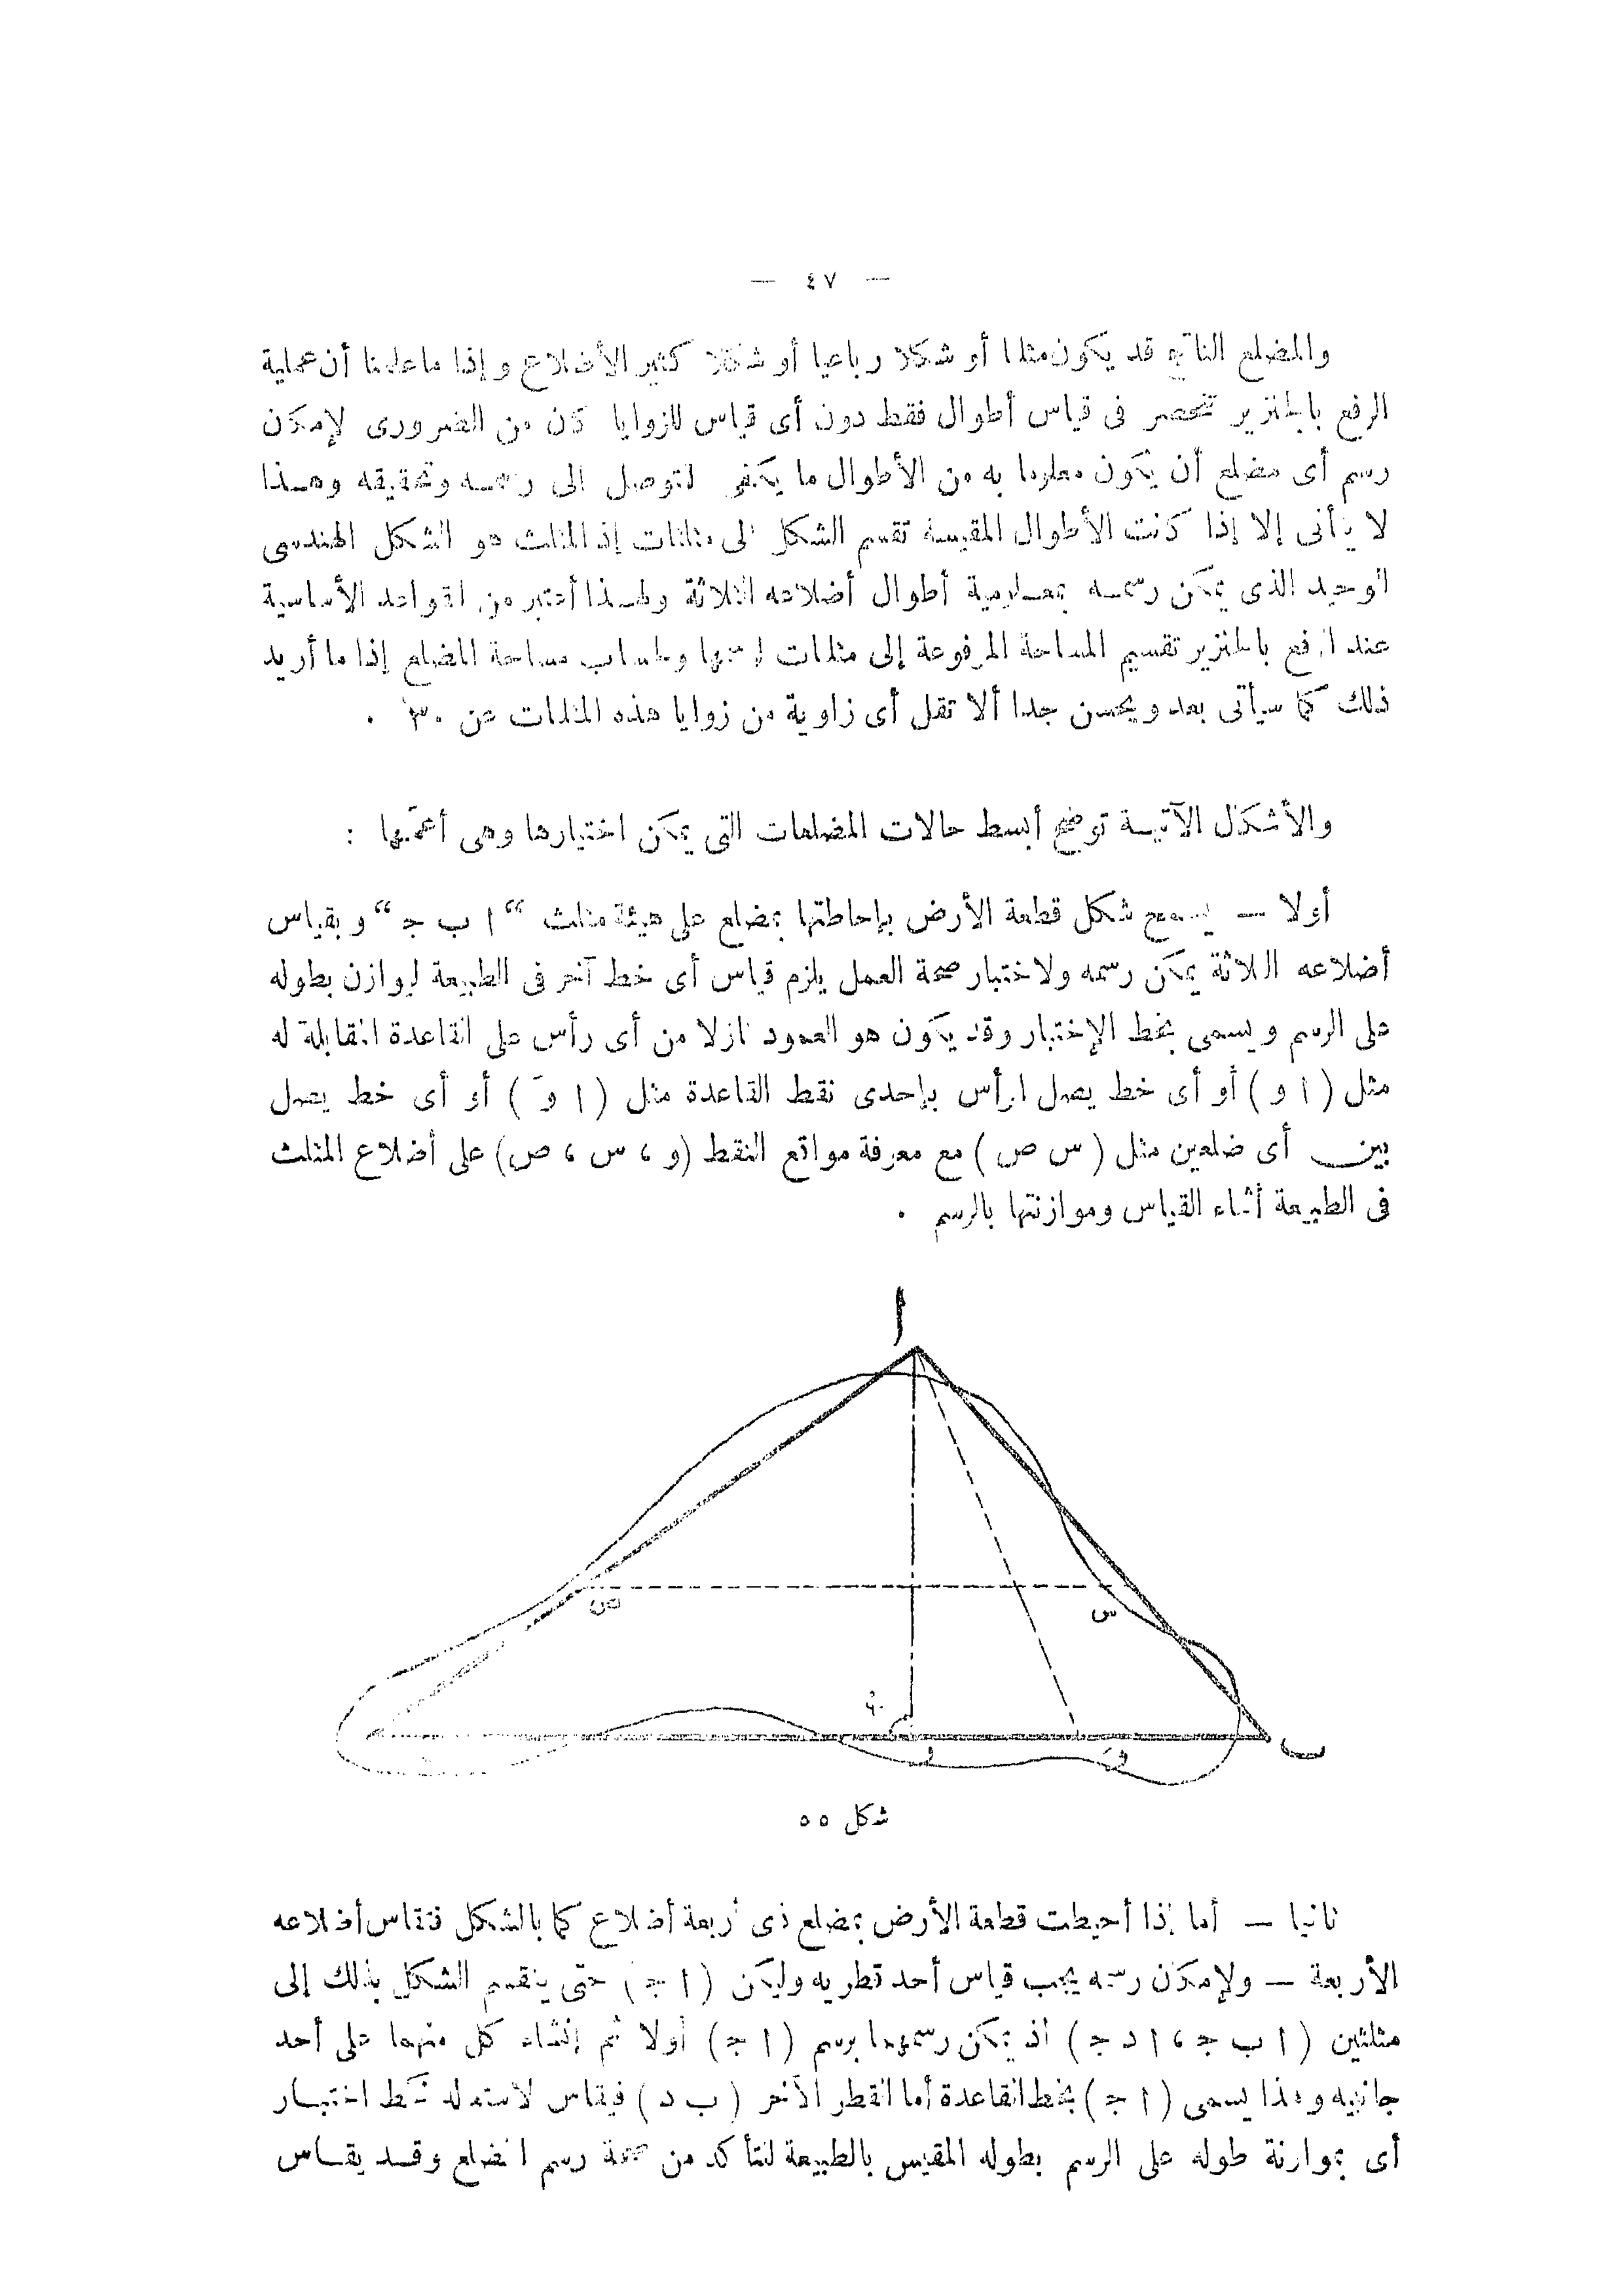 — ٤٧ —
والمضلع الناتج قد يكون مثلثا أو شكلا رباعيا أو شكلا كثير الأضلاع وإذا ما علمنا أن عملية
الرفع بالجنزير تنحصر فى قياس أطوال فقط دون أى قياس للزوايا كان من الضرورى لإمكان
رسم أى مضلع أن يكون معلوما به من الأطوال ما يكفى لتوصل الى رسمه وتحقيقه وهذا
لا يتأتى إلا إذا كانت الأطوال المقيسة تقسم الشكل الى مثلثات إذ المثلث هو الشكل الهندسى
الوحيد الذى يمكن رسمه بمعلومية أطوال أضلاعه الثلاثة ولهذا أعتبر من القواعد الأساسية
عند الرفع بالجنزير تقسيم المساحة المرفوعة إلى مثلثات لرسمها ولحساب مساحة المضلع إذا ما أريد
ذلك كما سيأتى بعد ويحسن جدا ألا تقل أى زاوية من زوايا هذه المثلثات عن ٣٠° .
والأشكال الآتية توضح أبسط حالات المضلعات التى يمكن اختيارها وهى أعمّها :
أولا — شكل قطعة الأرض بإحاطتها بمضلع على هيئة مثلث “ ا ب ج “ وبقياس
أضلاعه الثلاثة يمكن رسمه ولاختبار صحة العمل يلزم قياس أى خط آخر فى الطبيعة ليوازن بطوله
على الرسم ويسمى بخط الإختبار وقد يكون هو العمود نازلا من أى رأس على القاعدة المقابلة له
مثل ( ا و ) أو أى خط يصل الرأس بإحدى نقط القاعدة مثل ( ا وَ ) أو أى خط يصل
بين أى ضلعين مثل ( س ص ) مع معرفة مواقع النقط ( و ، س ، ص ) على أضلاع المثلث
فى الطبيعة أثناء القياس وموازنتها بالرسم .
ا
ص
س
٩٠°
و
وَ
ب
شكل ٥٥
ثانيا — أما إذا أحيطت قطعة الأرض بمضلع ذى أربعة أضلاع كما بالشكل فتقاس أضلاعه
الأربعة — ولإمكان رسمه يجب قياس أحد قطريه وليكن ( ا ج ) حتى ينقسم الشكل بذلك إلى
مثلثين ( ا ب ج ، ا د ج ) اذ يمكن رسمهما برسم ( ا ج ) أولا ثم إنشاء كل منهما على أحد
جانبيه وهذا يسمى ( ا ج ) بخط القاعدة أما القطر الآخر ( ب د ) فيقاس لاستعماله كخط اختبار
أى بموازنة طوله على الرسم بطوله المقيس بالطبيعة لنتأكد من صحة رسم المضلع وقد يقاس